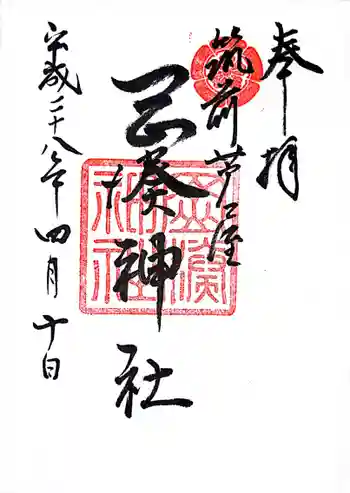 奉拝
筑前芦屋
岡湊神社
平成二十八年四月十日
岡湊神社